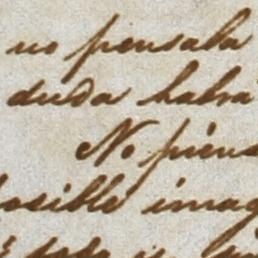 no pensaba
duda habra
No piens
posible imag